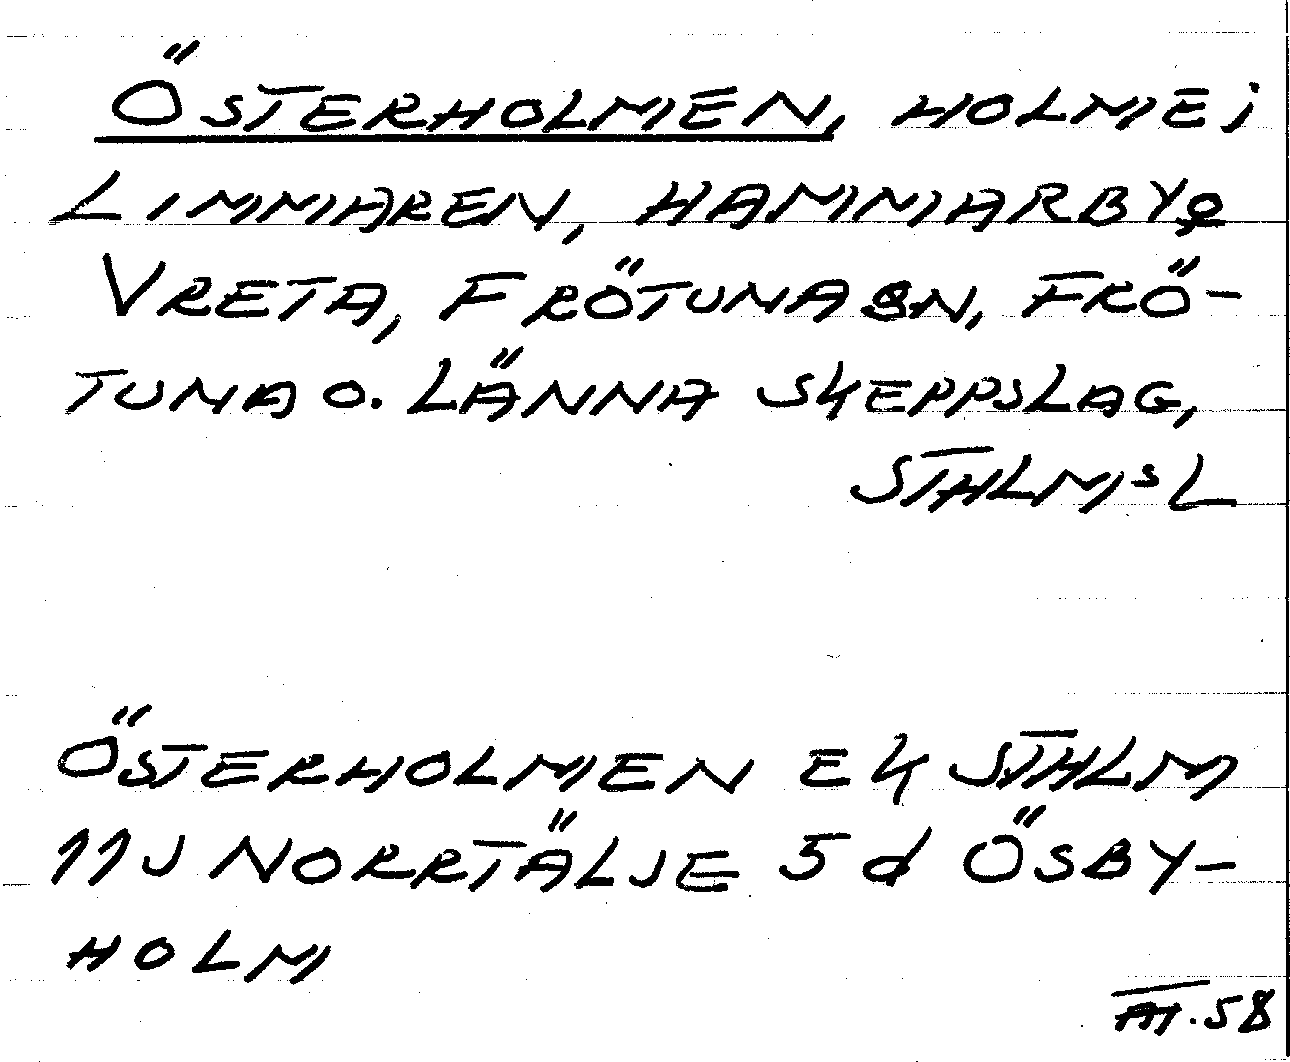 ÖSTERHOLMEN, HOLME i
LIMMAREN, HAMMARBY o
VRETA, FRÖTUNA SN, FRÖ-
TUNA O. LÄNNA SKEPPSLAG,
STHLMS L
ÖSTERHOLMEN EK STHLM
11J NORRTÄLJE 5d ÖSBY-
HOLM
58